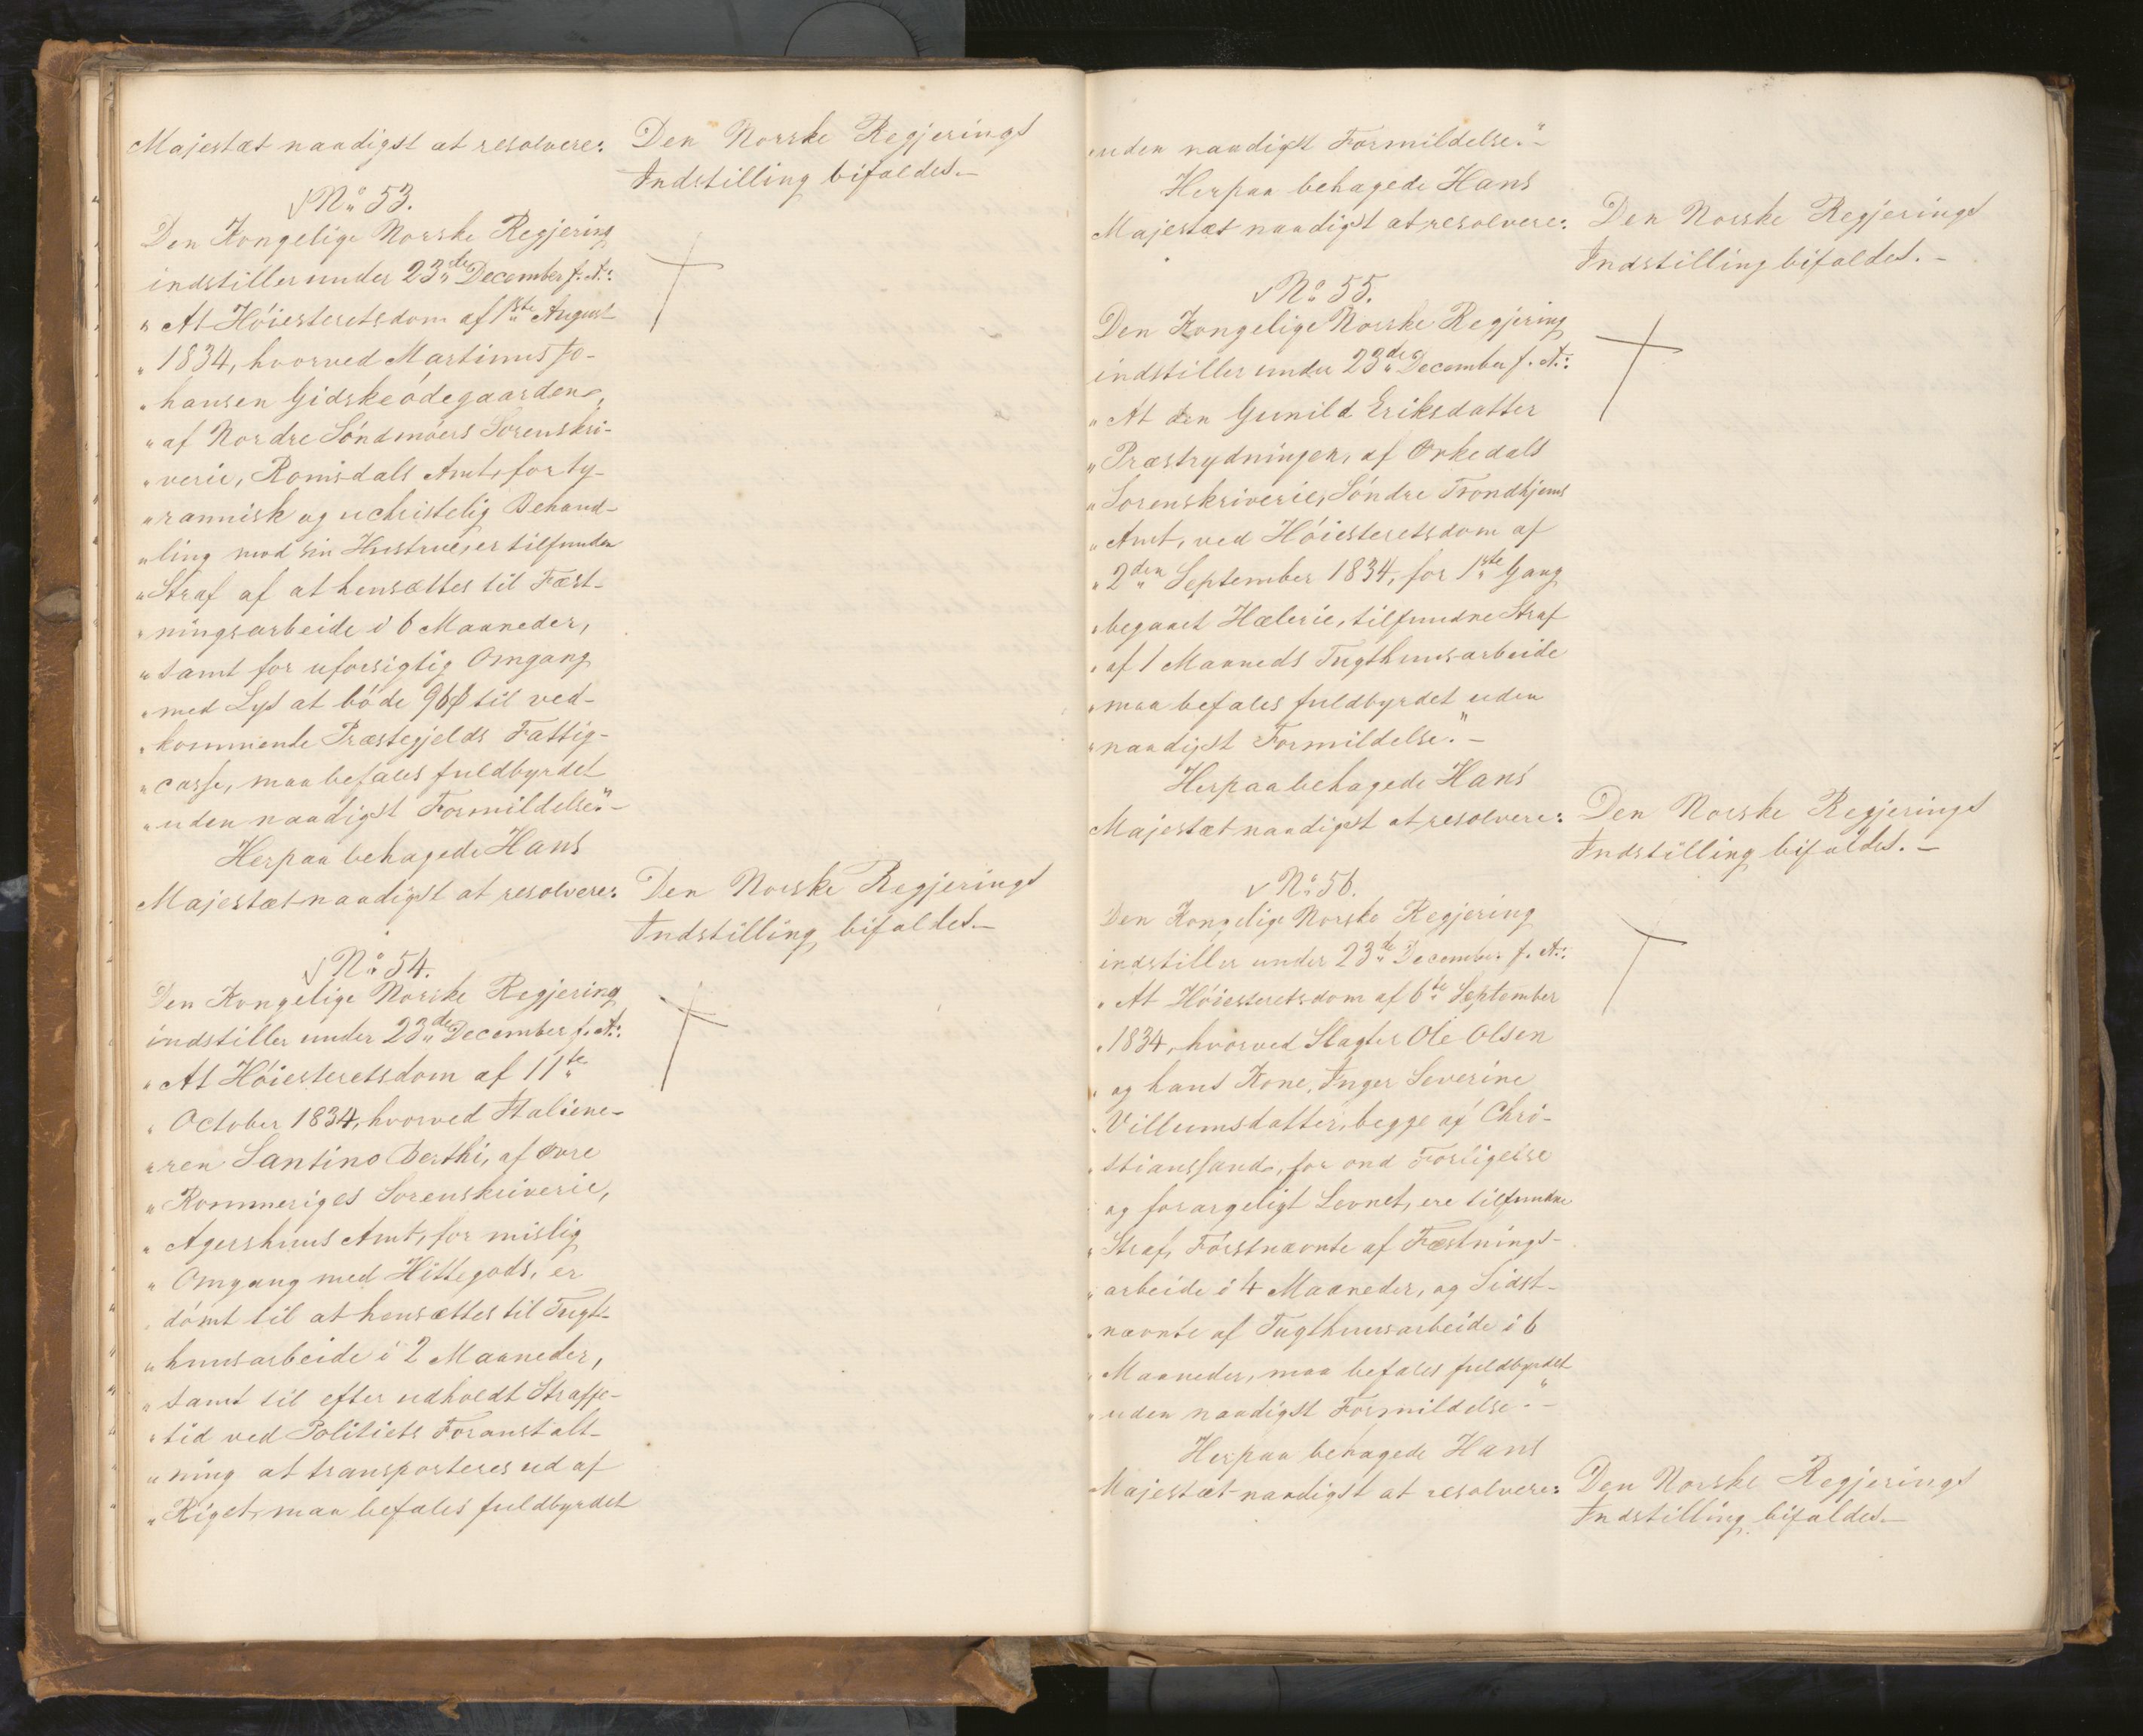 Majestæt naadigst at resolvere:
Den Norske Regjerings
Indstilling bifaldes.—
√ No 53.
Den Kongelige Norske Regjering
indstiller under 23de December f. A.:
„At Höiesteretsdom af 1ste August
„1834, hvorved Martinus Jo-
„hansen Gidskeödegaarden,
„af Nordre Söndmöers Sorenskri-
„verie, Romsdals Amt, for ty-
„rannisk og uchristelig Behand-
„ling mod sin Hustrue, er tilfunden
„Straf af at hensættes til Fæst-
„ningsarbeide i 6 Maaneder,
„samt for uforsigtig Omgang
„med Lys at böde 96 ß til ved-
„kommende Præstegjelds Fattig-
„casse, maa befales fuldbyrdet
„uden naadigst Formildelse."—
Herpaa behagede Hans
Majestæt naadigst at resolvere:
Den Norske Regjerings
Indstilling bifaldes.—
√ No 54.
Den Kongelige Norske Regjering
indstiller under 23de December f. A.:
„At Höiesteretsdom af 11te
„October 1834, hvorved Italiene-
„ren Santino Berthi, af Øvre
„Rommeriges Sorenskriverie,
„Agershuus Amt, for mislig
„Omgang med Hittegods, er
„dömt til at hensættes til Tugt-
„huusarbeide i 2 Maaneder,
„samt til efter udholdt Straffe-
„tid ved Politiets Foranstalt-
„ning at transporteres ud af
„Riget, maa befales fuldbyrdet
„uden naadigst Formildelse."—
Herpaa behagede Hans
Majestæt naadigst at resolvere:
Den Norske Regjerings
Indstilling bifaldes.—
√ No 55.
Den Kongelige Norske Regjering
indstiller under 23de December f. A.:
„At den Gunild Eriksdatter
„Præstrydningen, af Orkedals
„Sorenskriverie, Söndre Trondhjems
„Amt, ved Höiesteretsdom af
„2den September 1834, for 1ste Gang
„begaaet Hælerie, tilfundne Straf
„af 1 Maaneds Tugthuusarbeide
„maa befales fuldbyrdet uden
„naadigst Formildelse."—
Herpaa behagede Hans
Majestæt naadigst at resolvere:
Den Norske Regjerings
Indstilling bifaldes.—
√ No 56.
Den Kongelige Norske Regjering
indstiller under 23de December f. A.:
„At Höiesteretsdom af 6te September
„1834, hvorved Slagter Ole Olsen
„og hans Kone, Inger Severine
„Villumsdatter, begge af Chri-
„stianssand, for ond Forligelse
„og forargeligt Levnet, ere tilfundne
„Straf, Förstnævnte af Fæstnings-
„arbeide i 4 Maaneder, og Sidst-
„nævnte af Tugthuusarbeide i 6
„Maaneder, maa befales fuldbyrdet
„uden naadigst Formildelse."—
Herpaa behagede Hans
Majestæt naadigst at resolvere:
Den Norske Regjerings
Indstilling bifaldes.—